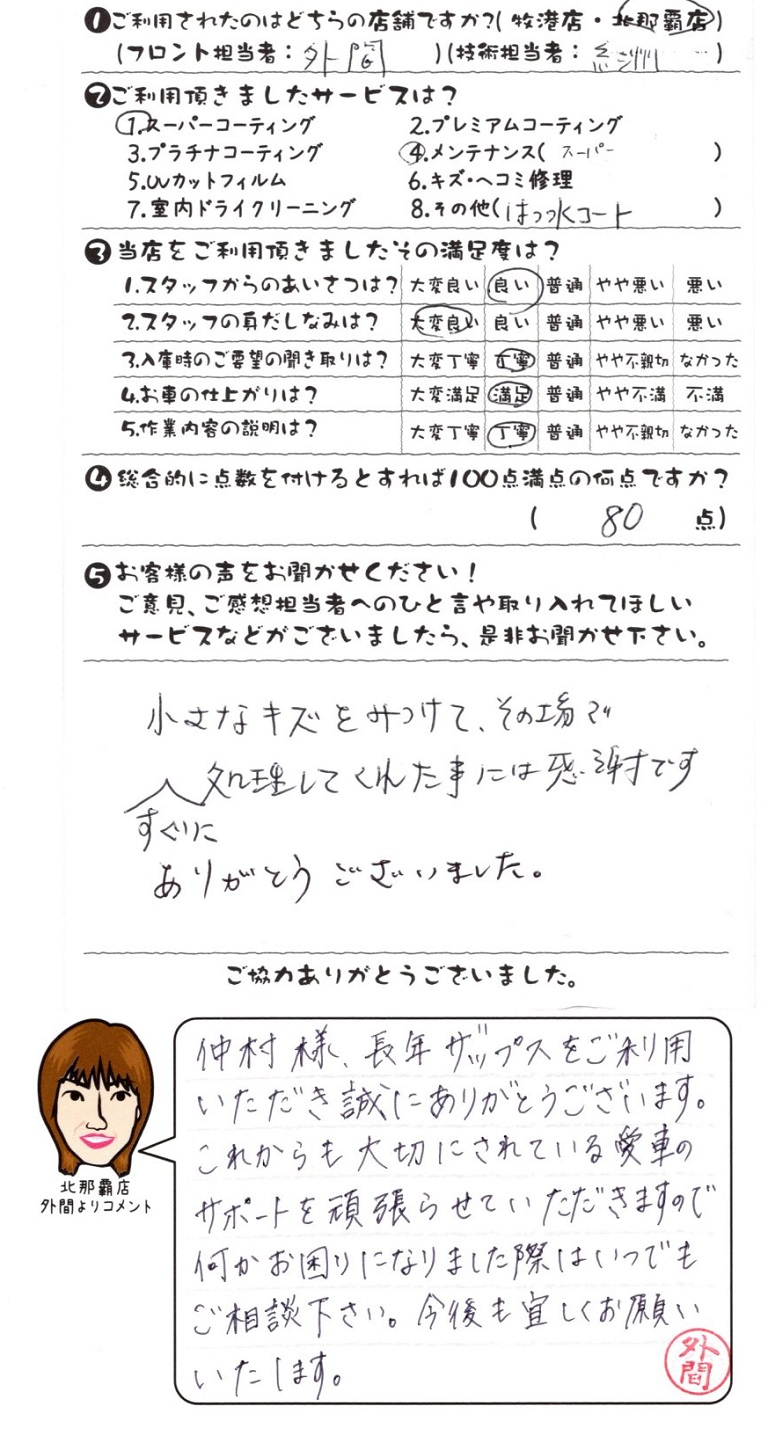 ❶ご利用されたのはどちらの店舗ですか?(牧港店・北那覇店)
(フロント担当者: 外間 )(技術担当者: )
❷ご利用頂きましたサービスは?
1.スーパーコーティング 2.プレミアムコーティング
3.プラチナコーティング 4.メンテナンス( スーパー )
5.UVカットフィルム 6.キズ・ヘコミ修理
7.室内ドライクリーニング 8.その他(はっ水コート )
❸当店をご利用頂きましたその満足度は?
1.スタッフからのあいさつは? 大変良い 良い 普通 やや悪い 悪い
2.スタッフの身だしなみは? 大変良い 良い 普通 やや悪い 悪い
3.入庫時のご要望の聞き取りは? 大変丁寧 丁寧 普通 やや不親切 なかった
4.お車の仕上がりは? 大変満足 満足 普通 やや不満 不満
5.作業内容の説明は? 大変丁寧 丁寧 普通 やや不親切 なかった
❹総合的に点数を付けるとすれば100点満点の何点ですか?
( 80 点)
❺お客様の声をお聞かせください!
ご意見、ご感想担当者へのひと言や取り入れてほしい
サービスなどがございましたら、是非お聞かせ下さい。
小さなキズをみつけて、その場で
処理してくれた事には感謝です
すぐに
ありがとうございました。
ご協力ありがとうございました。
仲村様、長年ザップスをご利用
いただき誠にありがとうございます。
これからも大切にされている愛車の
サポートを頑張らせていただきますので
何かお困りになりました際はいつでも
ご相談下さい。今後も宜しくお願い
いたします。
北那覇店
外間よりコメント
外間